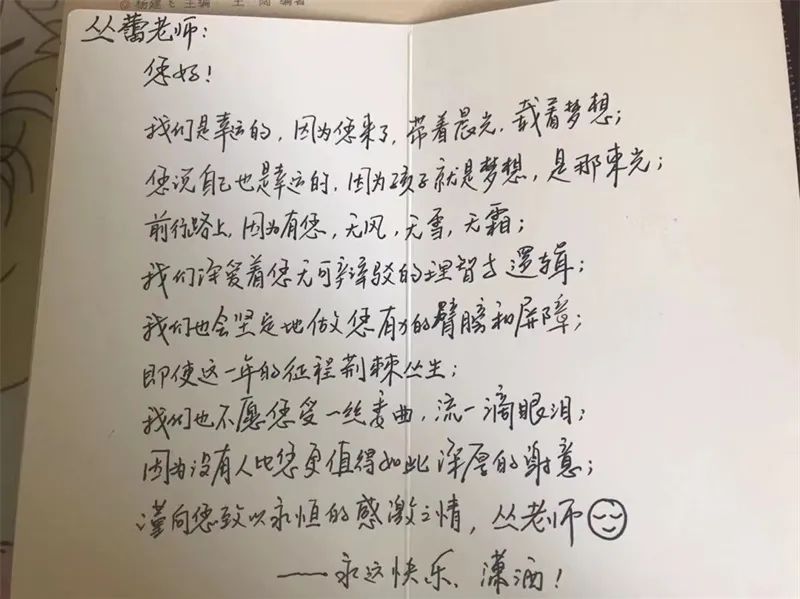 杨建飞 主编 王 阔 编著
丛蕾老师：
您好！
我们是幸运的，因为您来了，带着晨光，载着梦想；
您说自己也是幸运的，因为孩子就是梦想，是那束光；
前行路上，因为有您，无风，无雪，无霜；
我们深爱着您无可辩驳的理智与逻辑；
我们也会坚定地做您有力的臂膀和屏障；
即使这一年的征程荆棘丛生；
我们也不愿您受一丝委曲，流一滴眼泪；
因为没有人比您更值得如此深厚的谢意；
谨向您致以永恒的感激之情，丛老师
——永远快乐、潇洒！